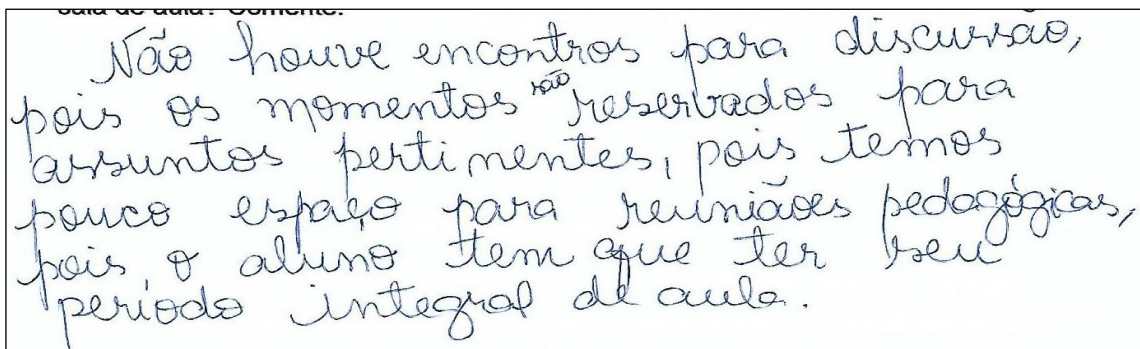 sala de aula? Comente.
Não houve encontros para discursão,
pois os momentos são reservados para
assuntos pertinentes, pois temos
pouco espaço para reuniãoes pedagógicas,
pois, o aluno tem que ter seu
período integral de aula.